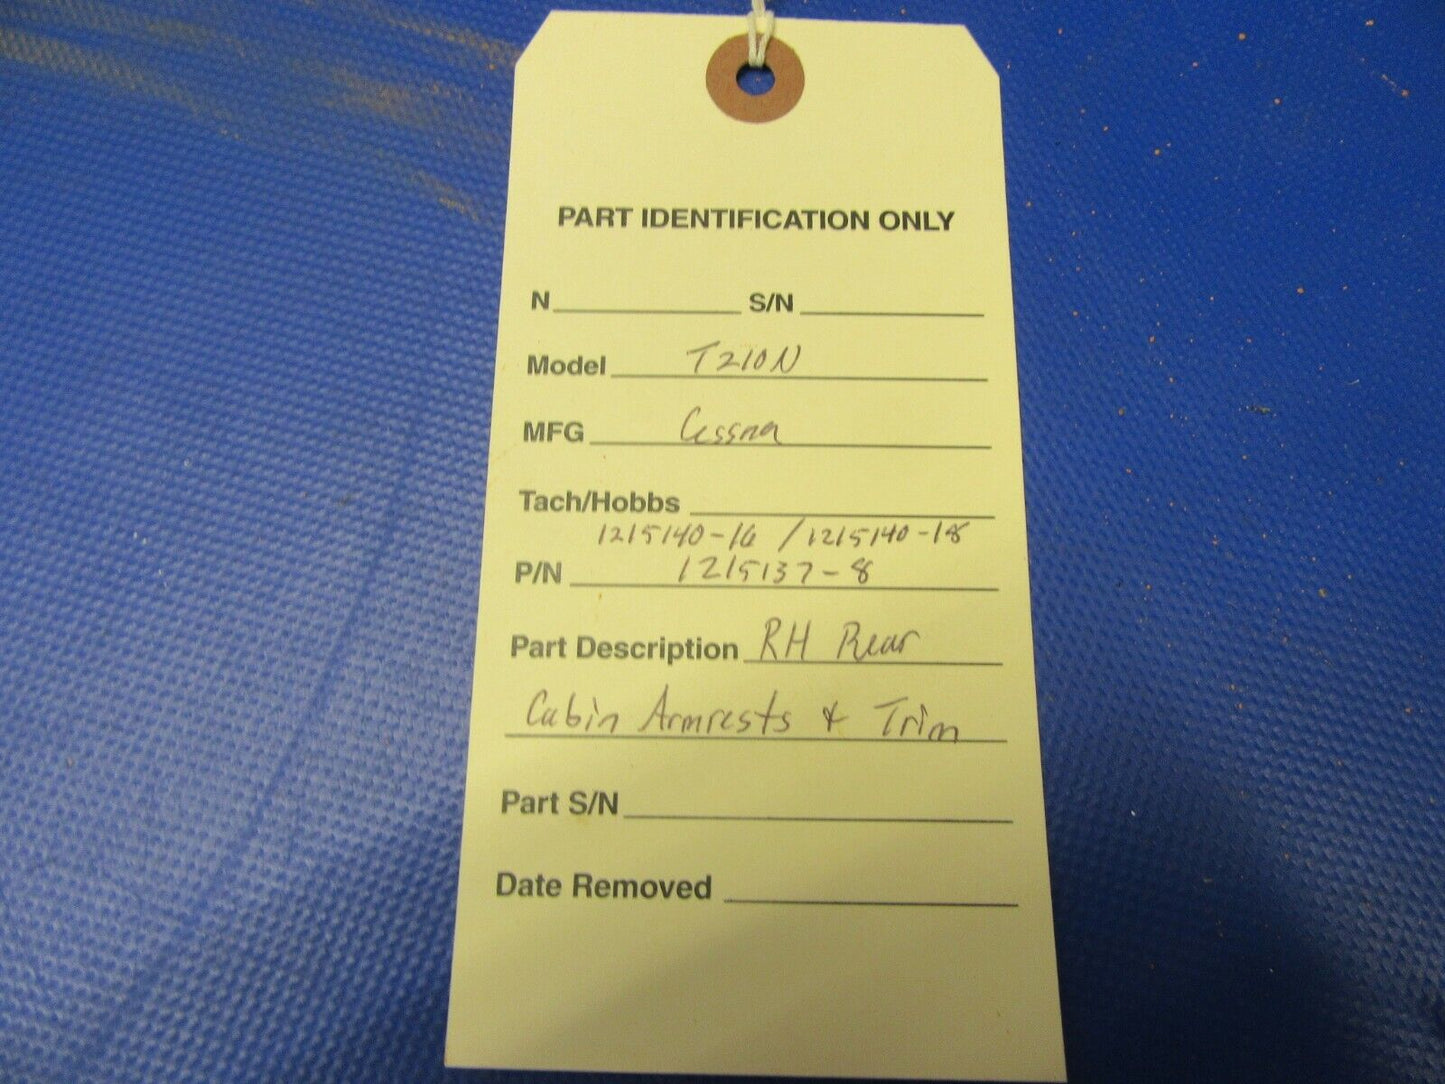 PART IDENTIFICATION ONLY
N S/N
Model T210N
MFG Cessna
Tach/Hobbs
1215140-16 / 1215140-18
P/N 1215137-8
Part Description RH Rear
Cabin Armrests & Trim
Part S/N
Date Removed